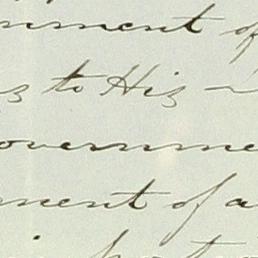 nment of
s to His
overnme
ment of a